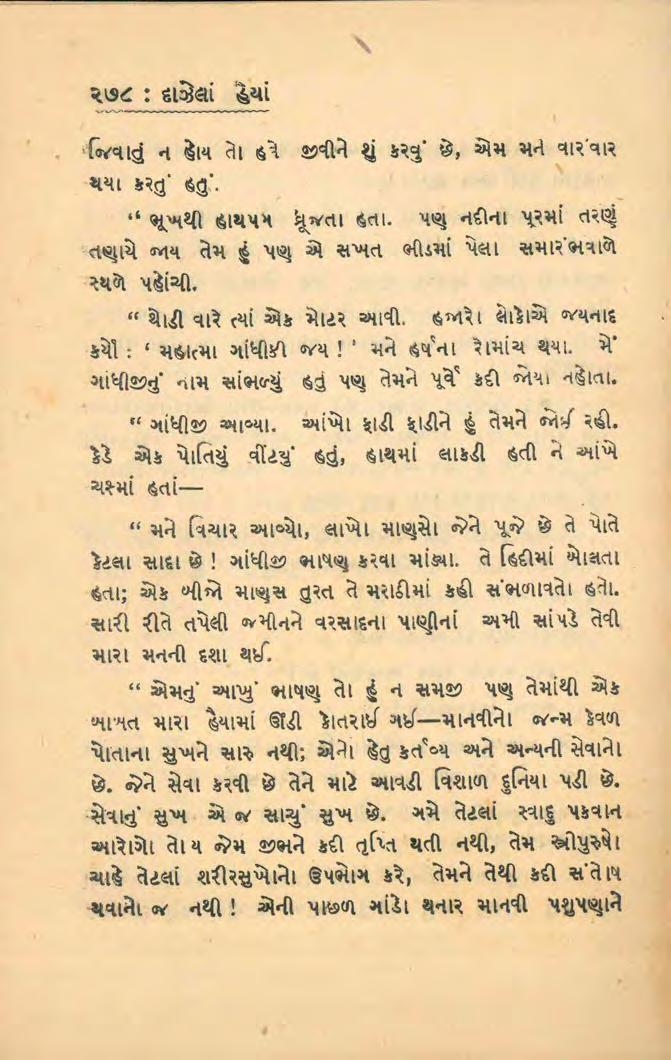 ૨૭૮ : દાઝેલાં હૈયાં
જિવાતું ન હોય તો હવે જીવીને શું કરવું છે, એમ મને વારંવાર
થયા કરતું હતું.
“ ભૂખથી હાથપગ ધ્રૂજતા હતા. પણ નદીના પૂરમાં તરણું
તણાયે જાય તેમ હું પણ એ સખત ભીડમાં પેલા સમારંભવાળે
સ્થળે પહોંચી.
“ થોડી વારે ત્યાં એક મોટર આવી. હજારો લોકોએ જયનાદ
કર્યો : ‘ મહાત્મા ગાંધીકી જય ! ’ મને હર્ષના રોમાંચ થયા. મેં
ગાંધીજીનું નામ સાંભળ્યું હતું પણ તેમને પૂર્વે કદી જોયા નહોતા.
“ ગાંધીજી આવ્યા. આંખો ફાડી ફાડીને હું તેમને જોઈ રહી.
કેડે એક પોતિયું વીંટયું હતું, હાથમાં લાકડી હતી ને આંખે
ચશ્માં હતાં—
“ મને વિચાર આવ્યો, લાખો માણસો જેને પૂજે છે તે પોતે
કેટલા સાદા છે ! ગાંધીજી ભાષણ કરવા માંડ્યા. તે હિંદીમાં બોલતા
હતા; એક બીજો માણસ તુરત તે મરાઠીમાં કહી સંભળાવતો હતો.
સારી રીતે તપેલી જમીનને વરસાદના પાણીનાં અમી સાંપડે તેવી
મારા મનની દશા થઈ.
“ એમનું આખું ભાષણ તો હું ન સમજી પણ તેમાંથી એક
બાબત મારા હૈયામાં ઊંડી કોતરાઈ ગઈ—માનવીનો જન્મ કેવળ
પોતાના સુખને સારુ નથી; એનો હેતુ કર્તવ્ય અને અન્યની સેવાનો
છે. જેને સેવા કરવી છે તેને માટે આવડી વિશાળ દુનિયા પડી છે.
સેવાનું સુખ એ જ સાચું સુખ છે. ગમે તેટલાં સ્વાદુ પકવાન
આરોગો તોય જેમ જીભને કદી તૃપ્તિ થતી નથી, તેમ સ્ત્રીપુરુષો
ચાહે તેટલાં શરીરસુખોનો ઉપભોગ કરે, તેમને તેથી કદી સંતોષ
થવાનો જ નથી ! એની પાછળ ગાંડો થનાર માનવી પશુપણાને